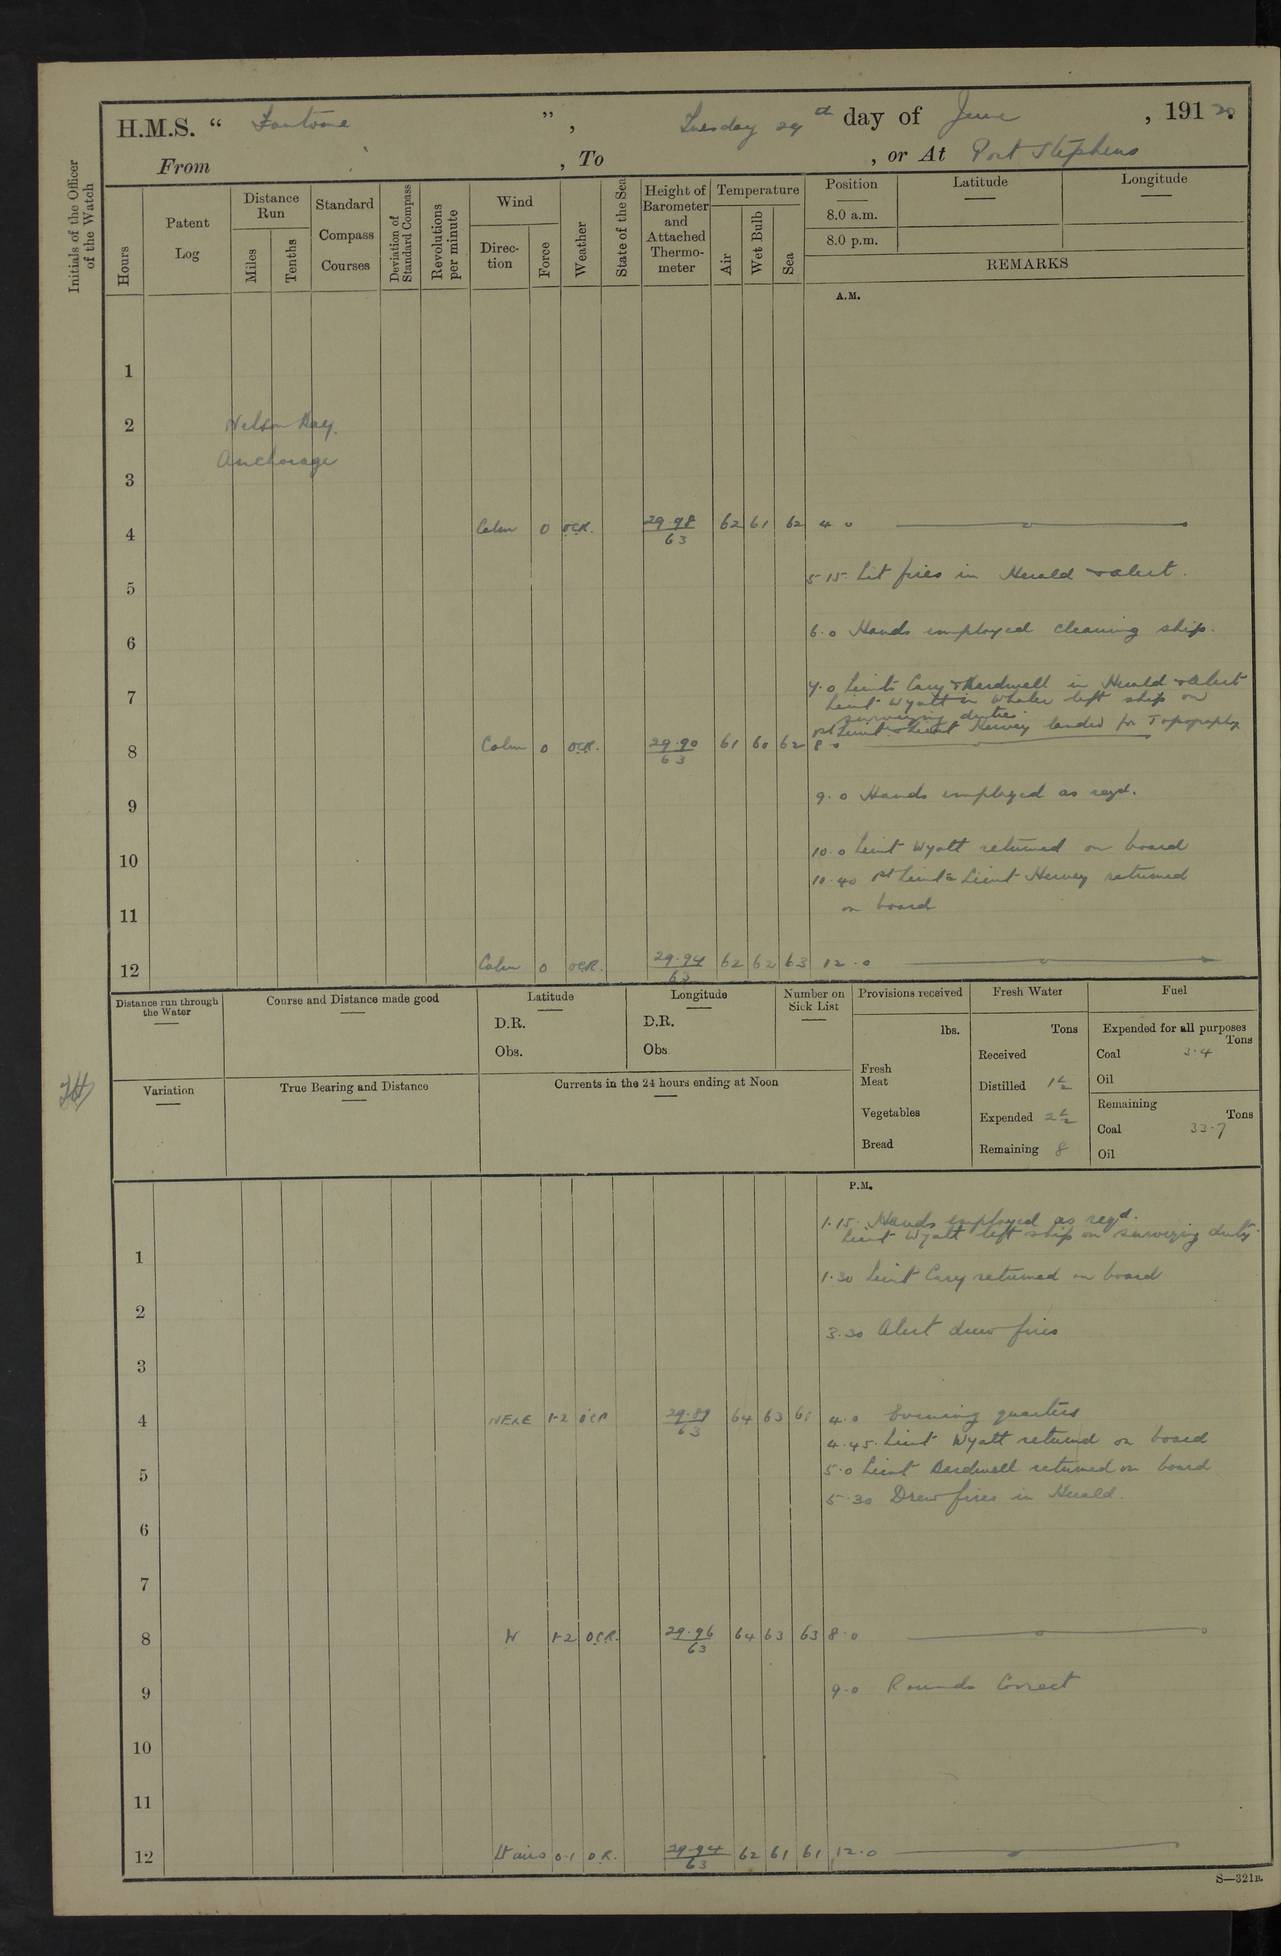 H.M.S. “ Fantome ” , Tuesday 29th day of June , 19120.
From , To , or At Port Stephens
Initials of the Officer of the Watch
Hours
Patent Log
Distance Run
Miles
Tenths
Standard Compass Courses
Deviation of Standard Compass
Revolutions per minute
Wind
Direc-tion
Force
Weather
State of the Sea
Height of Barometer and Attached Thermo-meter
Temperature
Air
Wet Bulb
Sea
Position Latitude Longitude
8.0 a.m.
8.0 p.m.
REMARKS
A.M.
1
2 Nelson Bay.
Anchorage
3
4 Calm 0 OCR. 29.98/63 62 61 62 4 0
5 5.15. Lit fires in Herald & Alert.
6 6.0 Hands employed cleaning ship.
7 7.0 Lieuts Cary & Bardwell in Herald & Alert
Lieut Wyatt in Whaler left ship on
surveying duties
1st Lieut & Lieut Hervey landed for Topography
8 Calm 0 OCR. 29.90/63 61 60 62 8 0
9 9.0 Hands employed as reqd.
10 10.0 Lieut Wyatt returned on board
10.40 1st Lieut & Lieut Hervey returned
11 on board
12 Calm 0 OCR. 29.94/63 62 62 63 12.0
Distance run through the Water
Course and Distance made good
Latitude
D.R.
Obs.
Longitude
D.R.
Obs
Number on Sick List
Provisions received
lbs.
Fresh Meat
Vegetables
Bread
Fresh Water
Tons
Received
Distilled 1½
Expended 2½
Remaining 8
Fuel
Expended for all purposes
Tons
Coal 3.4
Oil
Remaining
Tons
Coal 33.7
Oil
Variation
True Bearing and Distance
Currents in the 24 hours ending at Noon
P.M.
1.15. Hands employed as reqd.
Lieut Wyatt left ship on surveying duty.
1
1.30 Lieut Cary returned on board
2
3.30 Alert drew fires
3
4 NExE 1-2 OCR 29.89/63 64 63 61 4.0 Evening quarters
4.45. Lieut Wyatt returned on board
5 5.0 Lieut Bardwell returned on board
5.30 Drew fires in Herald.
6
7
8 N 1-2 OCR. 29.96/63 64 63 63 8.0
9 9.0 Rounds Correct
10
11
12 Lt airs 0-1 O.R. 29.94/63 62 61 61 12.0
S—321B.